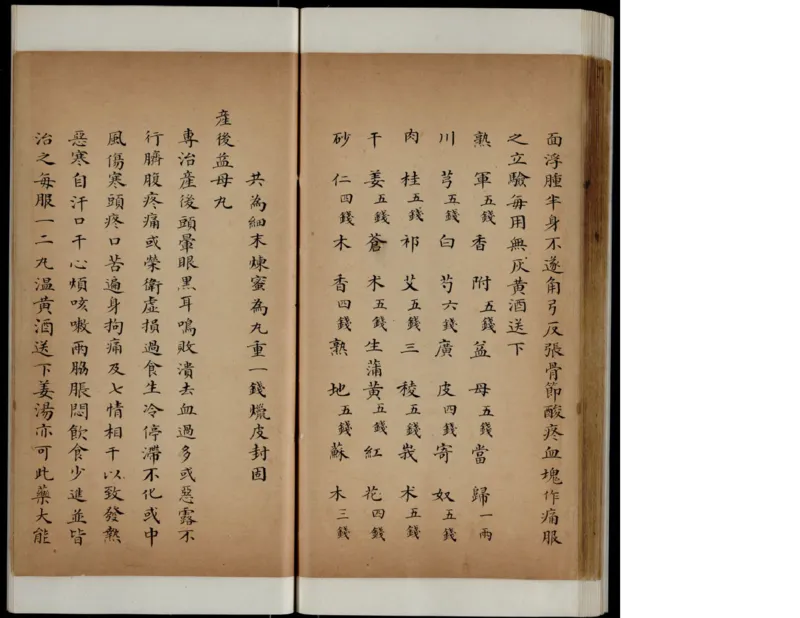 面浮腫半身不遂角弓反張骨節酸疼血塊作痛服
之立驗每用無灰黃酒送下
熟軍五錢香附五錢益母五錢當歸一兩
川芎五錢白芍六錢廣皮四錢寄奴五錢
肉桂五錢祁艾五錢三稜五錢莪术五錢
干姜五錢蒼术五錢生蒲黃五錢紅花四錢
砂仁四錢木香四錢熟地五錢蘇木三錢
共為細末煉蜜為丸重一錢蠟皮封固
產後益母丸
專治產後頭暈眼黑耳鳴敗潰去血過多或惡露不
行臍腹疼痛或榮衛虛損過食生冷停滯不化或中
風傷寒頭疼口苦遍身拘痛及七情相干以致發熱
惡寒自汗口干心煩咳嗽兩脇脹悶飲食少進並皆
治之每服一二丸溫黃酒送下姜湯亦可此藥大能